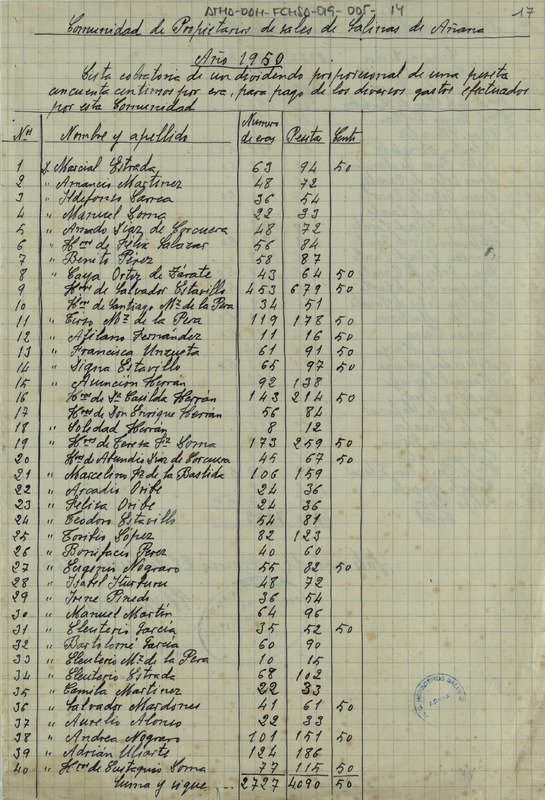 ATHA-DAH-FCHSA-019-005-14
17
Comunidad de Propietarios de sales de Salinas de Añana
Año 1950
Lista cobratoria de un dividendo proporcional de una peseta
cincuenta centimos por era, para pago de los diversos gastos efectuados
por esta Comunidad
Nos Nombre y apellido Numero de eras Pesetas Cents
1 D. Marcial Estrada 63 94 50
2 " Amancio Martinez 48 72
3 " Ildefonso Larrea 36 54
4 " Manuel Loma 22 33
5 " Amado Diaz de Corcuera 48 72
6 " Hros de Felix Salazar 56 84
7 " Benito Pérez 58 87
8 " Caya Ortiz de Zárate 43 64 50
9 " Hros de Salvador Estavillo 453 679 50
10 Hros de Santiago Mz de la Pera 34 51
11 " Tirso Mz de la Pera 119 178 50
12 " Atilano Fernández 11 16 50
13 " Francisca Unzueta 61 91 50
14 " Digna Estavillo 65 97 50
15 " Asunción Herrán 92 138
16 Hros de Da Casilda Herrán 143 214 50
17 Hros de Don Enrique Herrán 56 84
18 " Soledad Herrán 8 12
19 " Hros de Teresa Fz Loma 173 259 50
20 Hros de Atundio Diaz de Corcuera 45 67 50
21 " Marcelino Fz de la Bastida 106 159
22 " Arcadio Oribe 24 36
23 " Felisa Oribe 24 36
24 " Teodoro Estavillo 54 81
25 " Toribio López 82 123
26 " Bonifacio Perez 40 60
27 " Eugenio Nograro 55 82 50
28 " Isabel Iturburu 48 72
29 " Irene Pinedo 36 54
30 " Manuel Martín 64 96
31 " Eleuterio García 35 52 50
32 " Bartolomé García 60 90
33 " Eleuterio Mz de la Pera 10 15
34 " Eleuterio Estrada 68 102
35 " Camila Martinez 22 33
36 " Salvador Mardones 41 61 50
37 " Aurelio Alonso 22 33
38 " Andrea Nograro 101 151 50
39 " Adrián Uriarte 124 186
40 " Hros de Eustaquio Loma 77 115 50
Suma y sigue ... 2727 4090 50